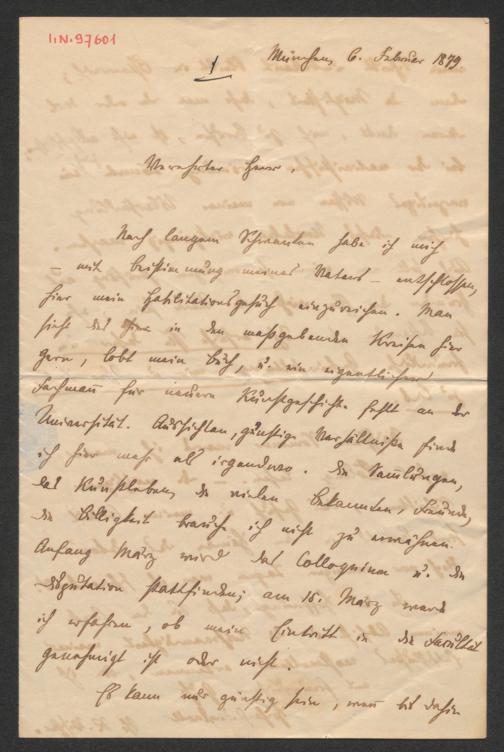 I.N. 97601
1
München, 6. Februar 1879
Verehrter Herr,
Nach langem Schwanken habe ich mich
– mit Beistimmung meines Vaters – entschlossen,
hier mein Habilitationsgesuch einzureichen. Man
sieht das in den maßgebenden Kreisen hier
gern, lobt mein Buch, u. ein eigentlicher
Fachmann für neuere Kunstgeschichte fehlt an der
Universität. Aussichten, günstige Verhältniße finde
ich hier mehr als irgendwo. Die Sammlungen,
das Kunstleben, die vielen Bekannten, Freunde,
die Billigkeit brauch ich nicht zu erwähnen.
Anfang März wird das Colloquium u. die
Disputation stattfinden; am 15. März werde
ich erfahren, ob mein Eintritt in die Facultät
genehmigt ist oder nicht.
Es kann nur günstig sein, wenn bis dahin